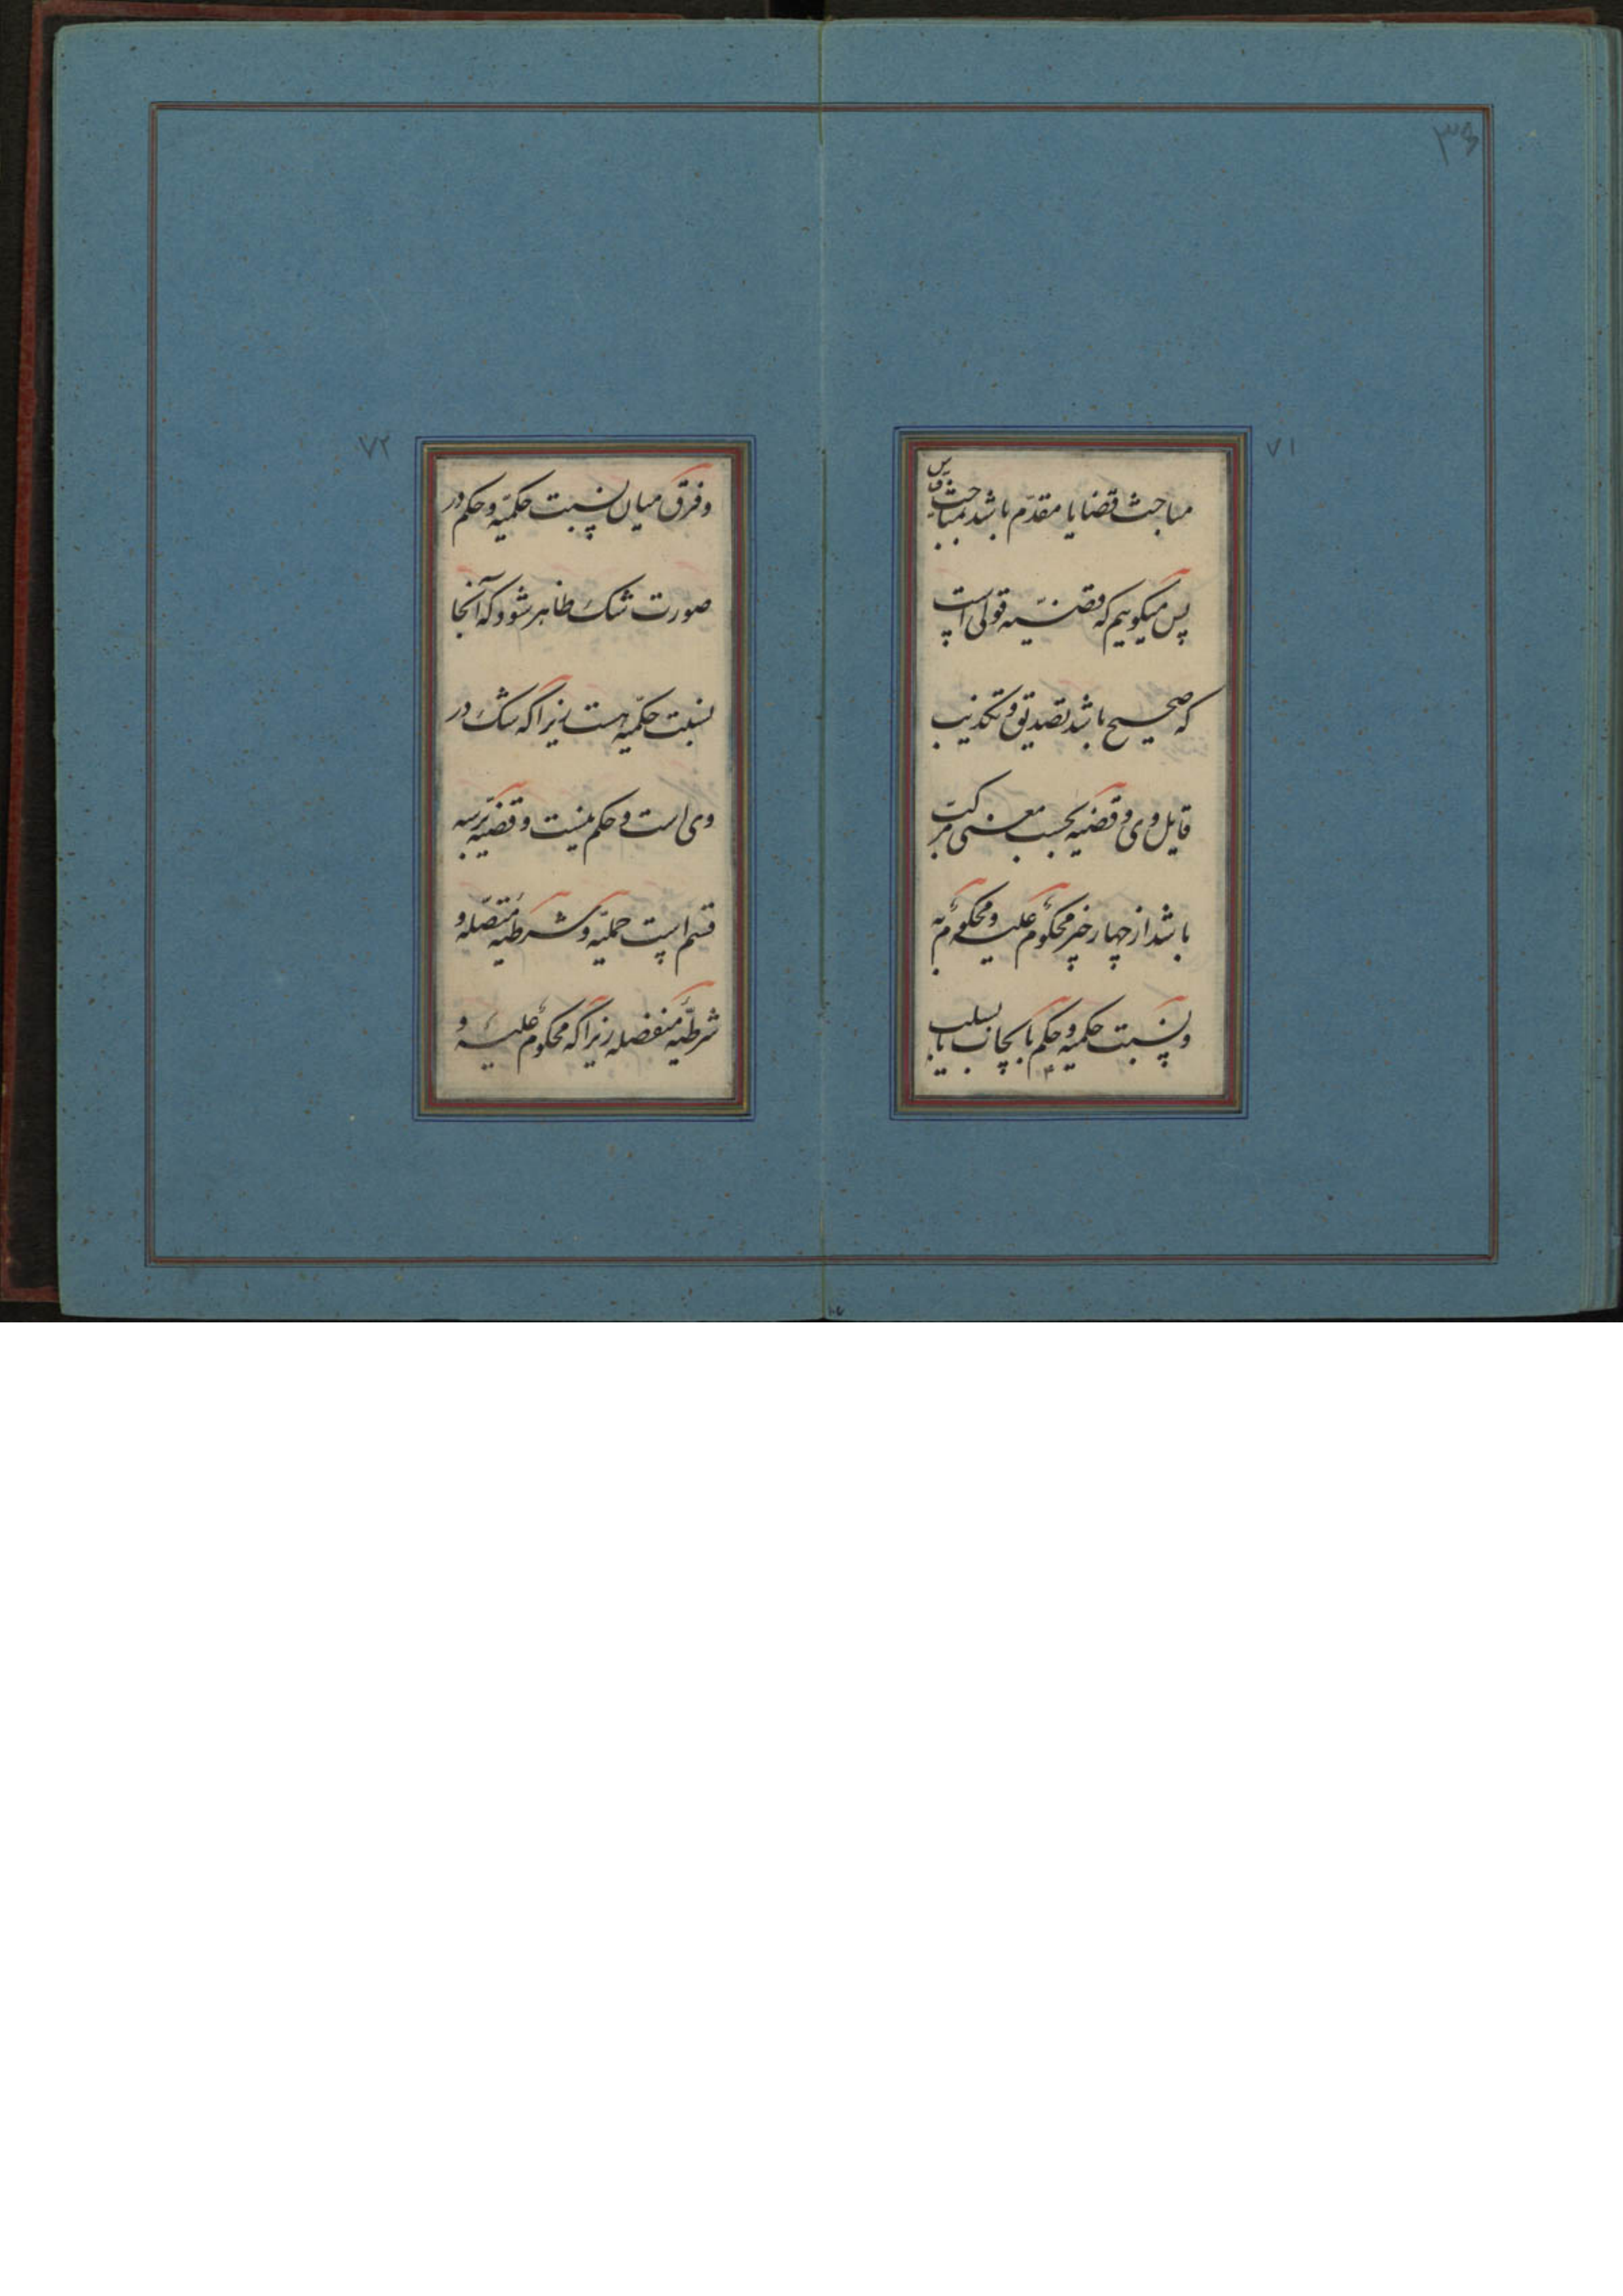 ۳۶
۷۱
مباحث قضایا مقدّم باشد بمباحث قیاس
پس میگوییم که قضیّه قولی است
که صحیح باشد تصدیق و تکذیب
قایل وی و قضیه بحسب معنی مرکب
باشد از چهار چیز محکومٌ علیه و محکومٌ به
و نسبت حکمیه و حکم بایجاب یا بسلب
۷۲
و فرق میان نسبت حکمیّه و حکم در
صورت شک ظاهر شود که آنجا
نسبت حکمیّه هست زیرا که شک در
وی است و حکم نیست و قضیّه بر سه
قسم است حملیّه و شرطیّه متّصله و
شرطیّه منفصله زیرا که محکومٌ علیه و